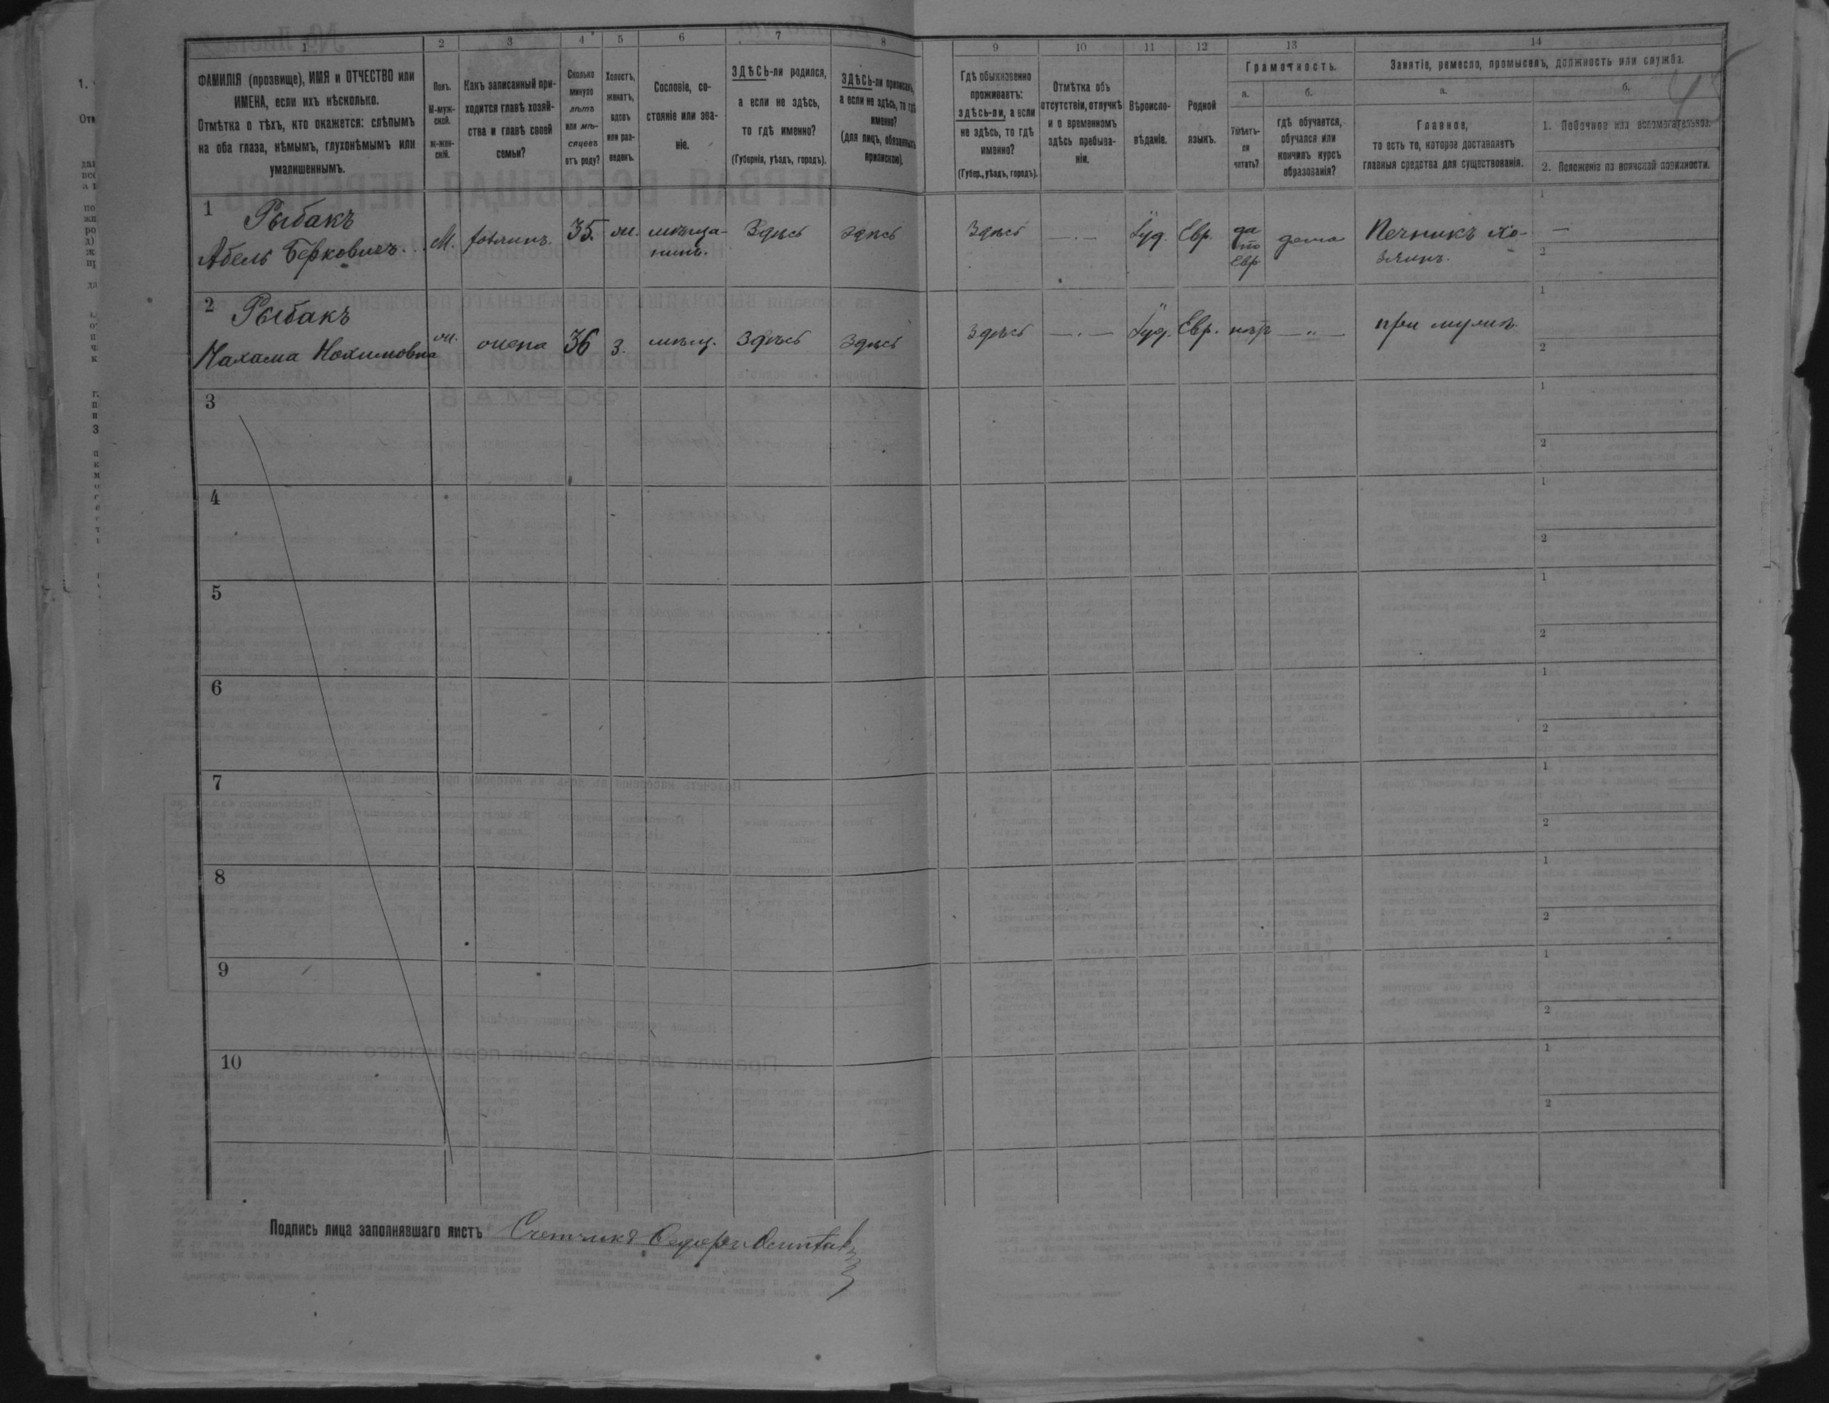 1 2 3 4 5 6 7 8 9 10 11 12 13 14
ФАМИЛІЯ (прозвище), ИМЯ и ОТЧЕСТВО или
ИМЕНА, если ихъ нѣсколько.
Отмѣтка о тѣхъ, кто окажется: слѣпымъ
на оба глаза, нѣмымъ, глухонѣмымъ или
умалишеннымъ.
Полъ.
М-муж-
ской.
Ж-жен-
скій.
Какъ записанный при-
ходится главѣ хозяй-
ства и главѣ своей
семьи?
Сколько
минуло
лѣтъ
или мѣ-
сяцевъ
отъ роду?
Холостъ,
женатъ,
вдовъ
или раз-
веденъ.
Сословіе, со-
стояніе или зва-
ніе.
ЗДѢСЬ-ли родился,
а если не здѣсь,
то гдѣ именно?
(Губернія, уѣздъ, городъ).
ЗДѢСЬ-ли приписанъ,
а если не здѣсь, то гдѣ
именно?
(для лицъ, обязанныхъ
припискою).
Гдѣ обыкновенно
проживаетъ:
здѣсь-ли, а если
не здѣсь, то гдѣ
именно?
(Губер., уѣздъ, городъ).
Отмѣтка объ
отсутствіи, отлучкѣ
и о временномъ
здѣсь пребыва-
ніи.
Вѣроиспо-
вѣданіе.
Родной
языкъ.
Грамотность.
а.
Умѣетъ-
ли
читать?
б.
гдѣ обучается,
обучался или
кончилъ курсъ
образованія?
Занятіе, ремесло, промыселъ, должность или служба.
а.
Главное,
то есть то, которое доставляетъ
главныя средства для существованія.
б.
1. Побочное или вспомогательное.
2. Положеніе по воинской повинности.
1 Рыбакъ
Абель Берковичъ. М. хозяинъ 35. ж. мѣща-
нинъ. Здѣсь здѣсь Здѣсь — Іуд. Евр. да
по
Евр дома Печникъ хо-
зяинъ. 1 —
2
2 Рыбакъ
Нахама Нохимовна ж. жена 36 з. мѣщ. Здѣсь Здѣсь здѣсь — Іуд. Евр. нѣтъ — „ — при мужѣ 1
2
3 1
2
4 1
2
5 1
2
6 1
2
7 1
2
8 1
2
9 1
2
10 1
2
Подпись лица заполнявшаго листъ Счетчикъ